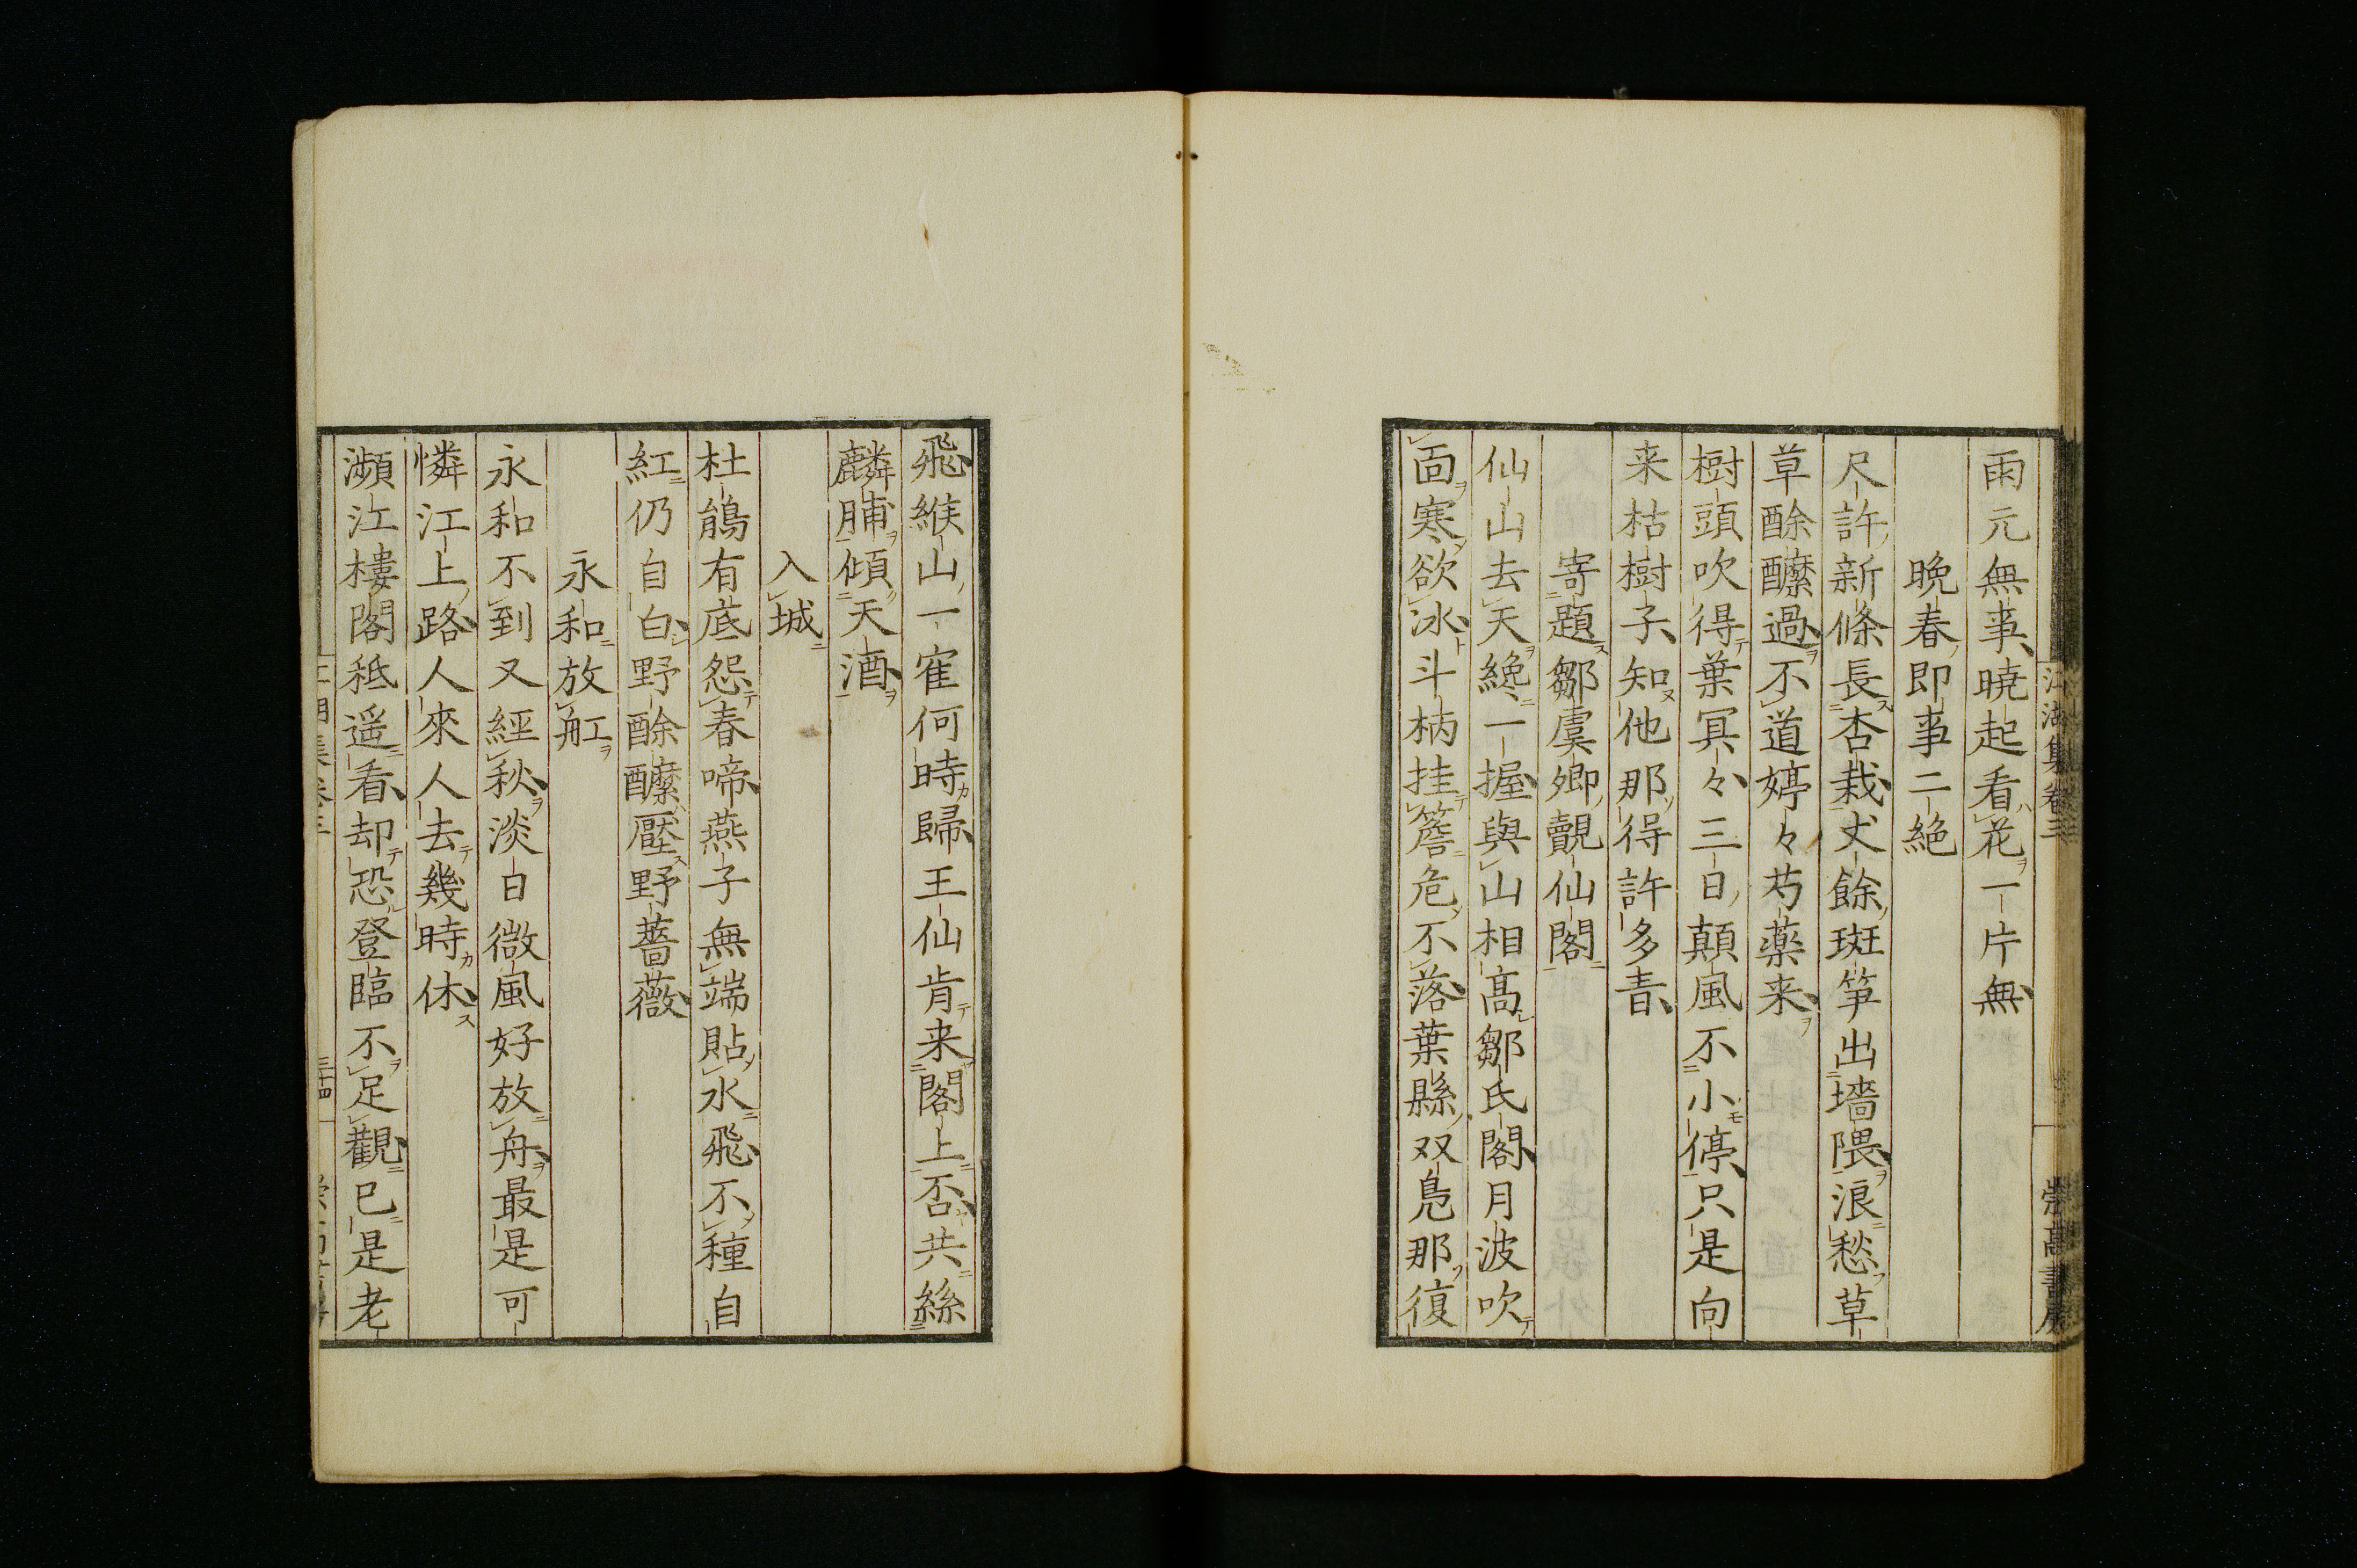 雨元無事曉起看花一片無
晩春即事二絶
尺許新條長杏栽丈餘斑笋出墻隈浪愁草
草酴醿過不道婷々芍藥来
樹頭吹得葉冥々三日顛風不小停只是向
来枯樹子知他那得許多青
寄題鄒虞卿覿仙閣
仙山去天纔一握與山相髙鄒氏閣月波吹
面寒欲冰斗柄挂簷危不落葉縣双鳬那復
江湖集卷三
崇髙書房
飛緱山一寉何時歸王仙肯来閣上否共絲
麟脯傾天酒
入城
杜鵑有底怨春啼燕子無端貼水飛不種自
紅仍自白野酴醿壓野薔薇
永和放舡
永和不到又經秋淡日微風好放舟最是可
憐江上路人來人去幾時休
瀕江樓閣秪遥看却恐登臨不足觀已是老
三十四